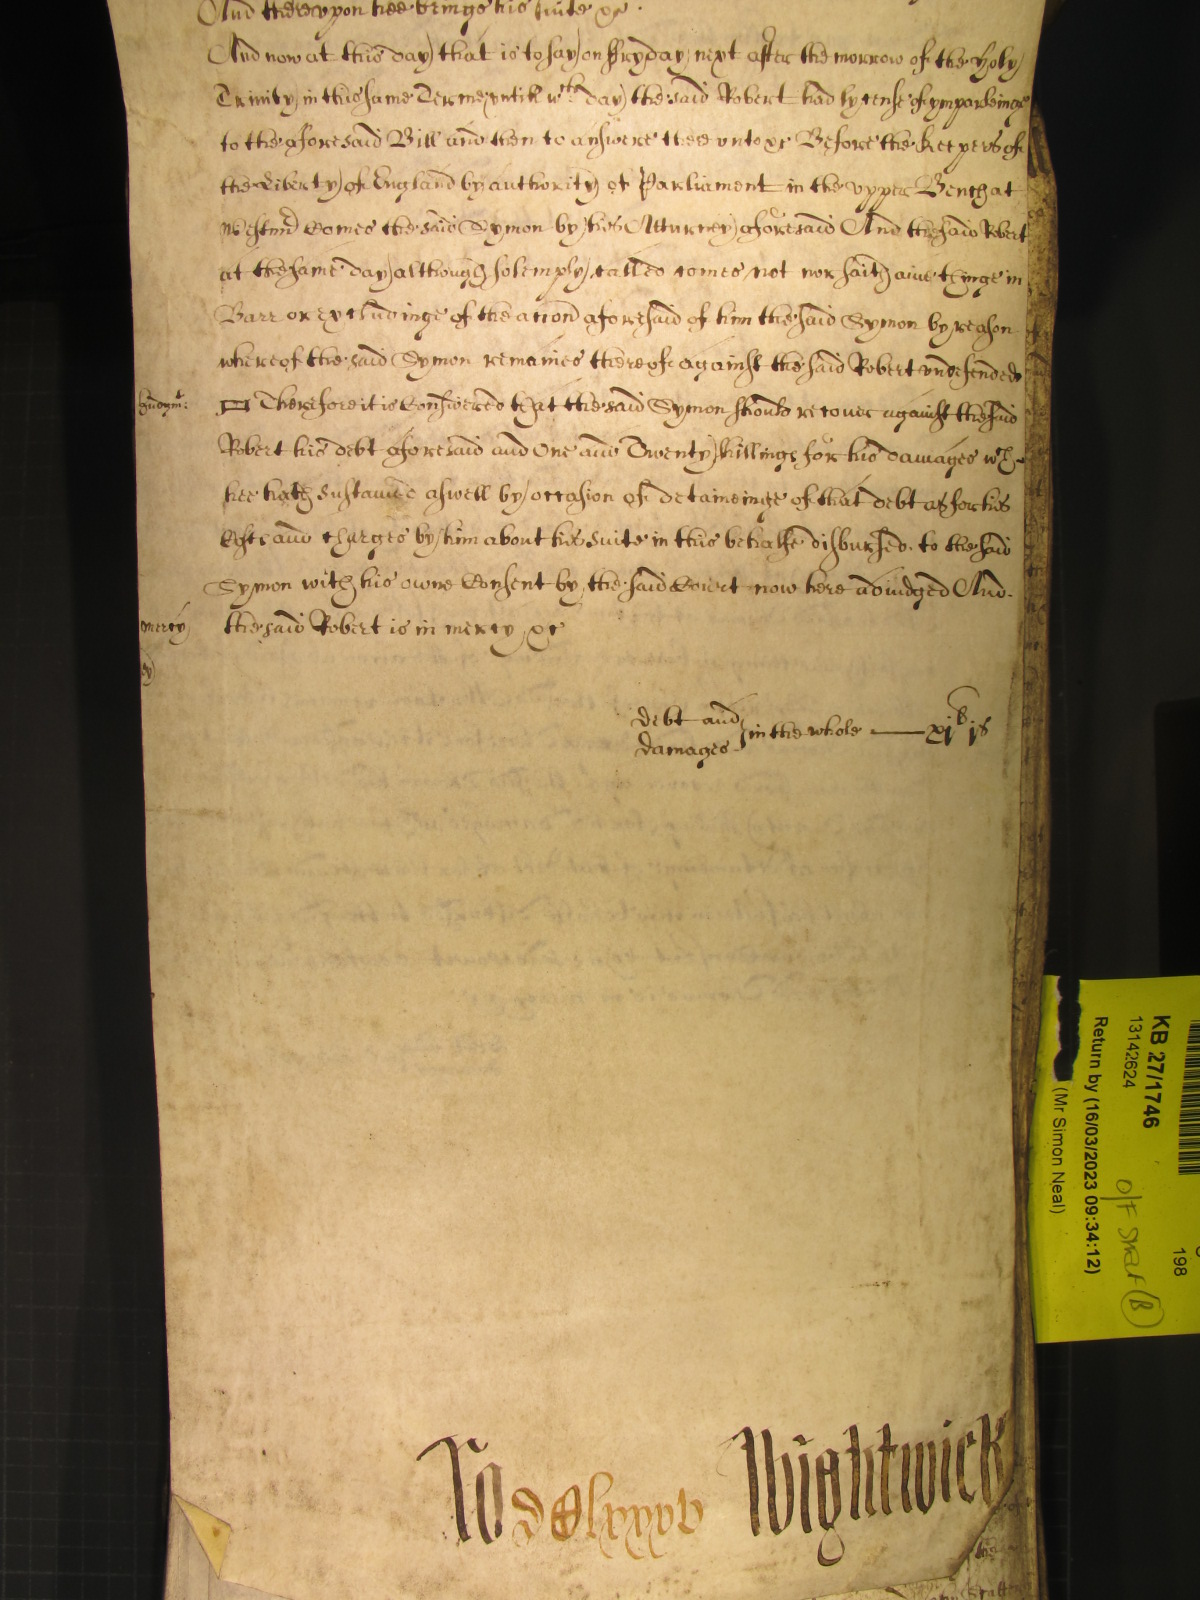 And thereupon hee brings his suite &c.
And now at this day that is to say on ffryday next after the morrow of the Holy
Trinity in this same Terme untill wch day the said Robert had lycense of ymparleinge
to the aforesaid Bill and then to answere thereunto &c Before the Keepers of
the Liberty of England by authority of Parliament in the upper Bench at
Westmr Comes the said Symon by his Atturney aforesaid And the said Robert
at the same day although solemply called comes not nor saith anie thinge in
Barr or excludinge of the accon aforesaid of him the said Symon by reason
whereof the said Symon remaines thereof against the said Robert undefended
Judgmt: Therefore it is Considered that the said Symon should recover against the said
Robert his debt aforesaid and One and Twenty shillings for his damages wch
hee hath sustained aswell by occasion of detaineinge of that debt as for his
Costs and charges by him about his suite in this behalfe disbursed to the said
Symon with his owne Consent by the said Court now here adiudged And
mercy the said Robert is in mercy &c
debt and damages } in the whole — xjli js
Ro dClxxxv Wightwick
KB 27/1746
13142624
Return by (16/03/2023 09:34:12)
(Mr Simon Neal)
198
O/F Strat B